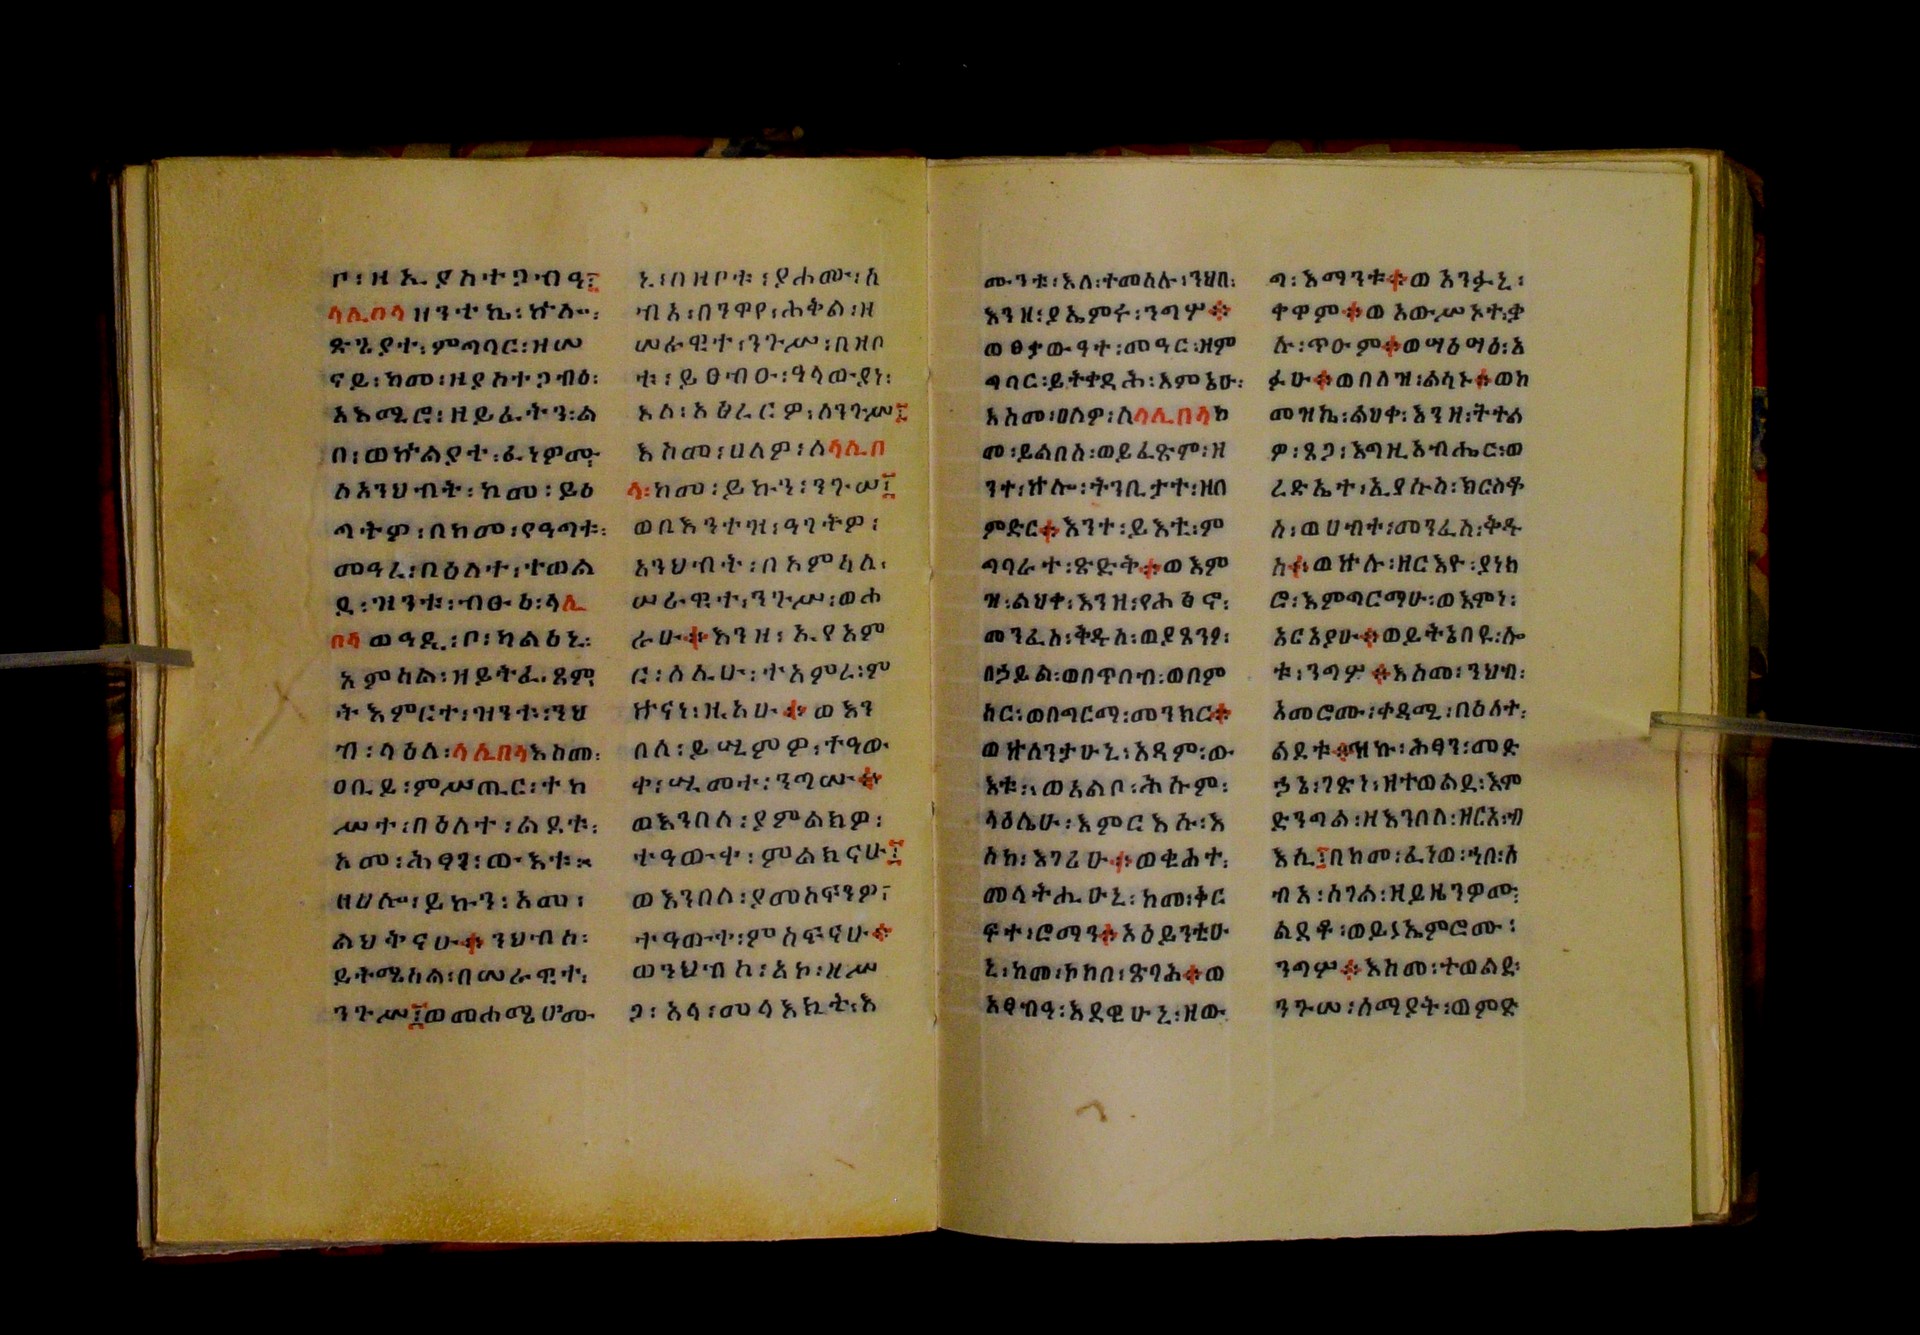 ቦ፡ዘኢያስተጋብዓ፤
ላሊበላዘንተኬ፡ኵሎ፡
ጽጌያተ፡ምግባር፡ዘሠ
ናይ፡ከመ፡ዘያስተጋብዕ፡
አእሚሮ፡ዘይፈትን፡ል
በ፡ወኵልያተ፡ፈነዎሙ
ለአንህብት፡ከመ፡ይዕ
ጣትዎ፡በከመ፡የዓጣቱ፡
መዓረ፡በዕለተ፡ተወል
ደ፡ዝንቱ፡ብፁዕ፡ላሊ
በላወዓዲ፡ቦ፡ካልዕኒ፡
አምሳል፡ዘይትፈጸም
ት እምርተ፡ዝንቱ፡ንህ
ብ፡ላዕለ፡ላሊበላእስመ፡
ዐቢይ፡ምሥጢር፡ተከ
ሥተ፡በዕለተ፡ልደቱ፡
አመ፡ሕፃን፡ውእቱ፡
ዘሀሎ፡ይኩን፡አመ፡
ልህቅናሁ፨ንህብሰ፡
ይትሜሰል፡በሠራዊተ፡
ንጉሥ፤ወመሐሜሆሙ
ኒ፡በዘቦቱ፡ያሐሙ፡አ
ብአ፡በንዋየ፡ሐቅል፡ዘ
ሠራዊተ፡ንጉሥ፡በዘቦ
ቱ፡ይፀብዑ፡ዓላውያነ፡
እለ፡አፅረርዎ፡ለንጉሥ፤
እስመ፡ሀለዎ፡ለላሊበ
ላ፡ከመ፡ይኩን፡ንጉሠ፤
ወበእንተዝ፡ዓገትዎ፡
አንህብት፡በአምሳለ፡
ሠራዊተ፡ንጉሥ፡ወሐ
ራሁ፨እንዘ፡ኢየአም
ር፡ለሊሁ፡ተአምረ፡ም
ኵናነ፡ዚአሁ፨ወእን
በለ፡ይሢምዎ፡ተዓው
ቀ፡ሢመተ፡ንግሡ፨
ወእንበለ፡ያምልክዎ፡
ተዓውቀ፡ምልክናሁ፤
ወእንበለ፡ያመስፍንዎ፡
ተዓውቀ፡ምስፍናሁ፨
ወንህብሰ፡አኮ፡ዘሥ
ጋ፡አላ፡መላእክት፡እ
ሙንቱ፡እለ፡ተመሰሉ፡ንህበ፡
እንዘ፡ያኤምሩ፡ንግሦ፨
ወፀቃውዓተ፡መዓር፡ዝም
ግባር፡ይትቀዳሕ፡እምኔሁ፡
እስመ፡ሀለዎ፡ለላሊበላከ
መ፡ይልበስ፡ወይፈጽም፡ዘ
ንተ፡ኵሎ፡ትንቢታተ፡ዘበ
ምድር፨እንተ፡ይእቲ፡ም
ግባራተ፡ጽድቅ፨ወእም
ዝ፡ልህቀ፡እንዘ፡የሐፅኖ፡
መንፈስ፡ቅዱስ፡ወያጸንዖ፡
በኃይል፡ወበጥበብ፡ወበም
ክር፡ወበግርማ፡መንክር፨
ወኵለንታሁኒ፡አዳም፡ው
እቱ፡ወአልቦ፡ሕሱም፡
ላዕሌሁ፡እምርእሱ፡እ
ስከ፡እገሪሁ፨ወቂሕተ፡
መላትሒሁኒ፡ከመ፡ቅር
ፍተ፡ሮማን፨አዕይንቲሁ
ኒ፡ከመ፡ኮከበ፡ጽባሕ፨ወ
አፃብዓ፡እደዊሁኒ፡ዘው
ጣ፡እማንቱ፨ወአንፉኒ፡
ቀዋም፨ወአውሥኦተ፡ቃ
ሉ፡ጥዑም፨ወማዕማዕ፡አ
ፉሁ፨ወበለዝ፡ልሳኑ፨ወከ
መዝኬ፡ልህቀ፡እንዘ፡ትተል
ዎ፡ጸጋ፡እግዚአብሔር፡ወ
ረድኤተ፡ኢያሱስ፡ክርስቶ
ስ፡ወሀብተ፡መንፈስ፡ቅዱ
ስ፨ወኵሉ፡ዘርእዮ፡ያነክ
ሮ፡እምግርማሁ፡ወእምነ፡
አርአያሁ፨ወይትኔበዩ፡ሎ
ቱ፡ንግሦ፨እስመ፡ንህብ፡
አመሮሙ፡ቀዳሚ፡በዕለተ፡
ልደቱ፨ዝኩ፡ሕፃን፡መድ
ኃኔ፡ገጽነ፡ዘተወልደ፡እም
ድንግል፡ዘእንበለ፡ዘርአ፡ብ
እሲ፤በከመ፡ፈነወ፡ኀበ፡ሰ
ብአ፡ሰገል፡ዘይዜንዎሙ፡
ልደቶ፡ወይኤምሮሙ፡
ንግሦ፨እስመ፡ተወልደ፡
ንጉሠ፡ሰማያት፡ወምድ